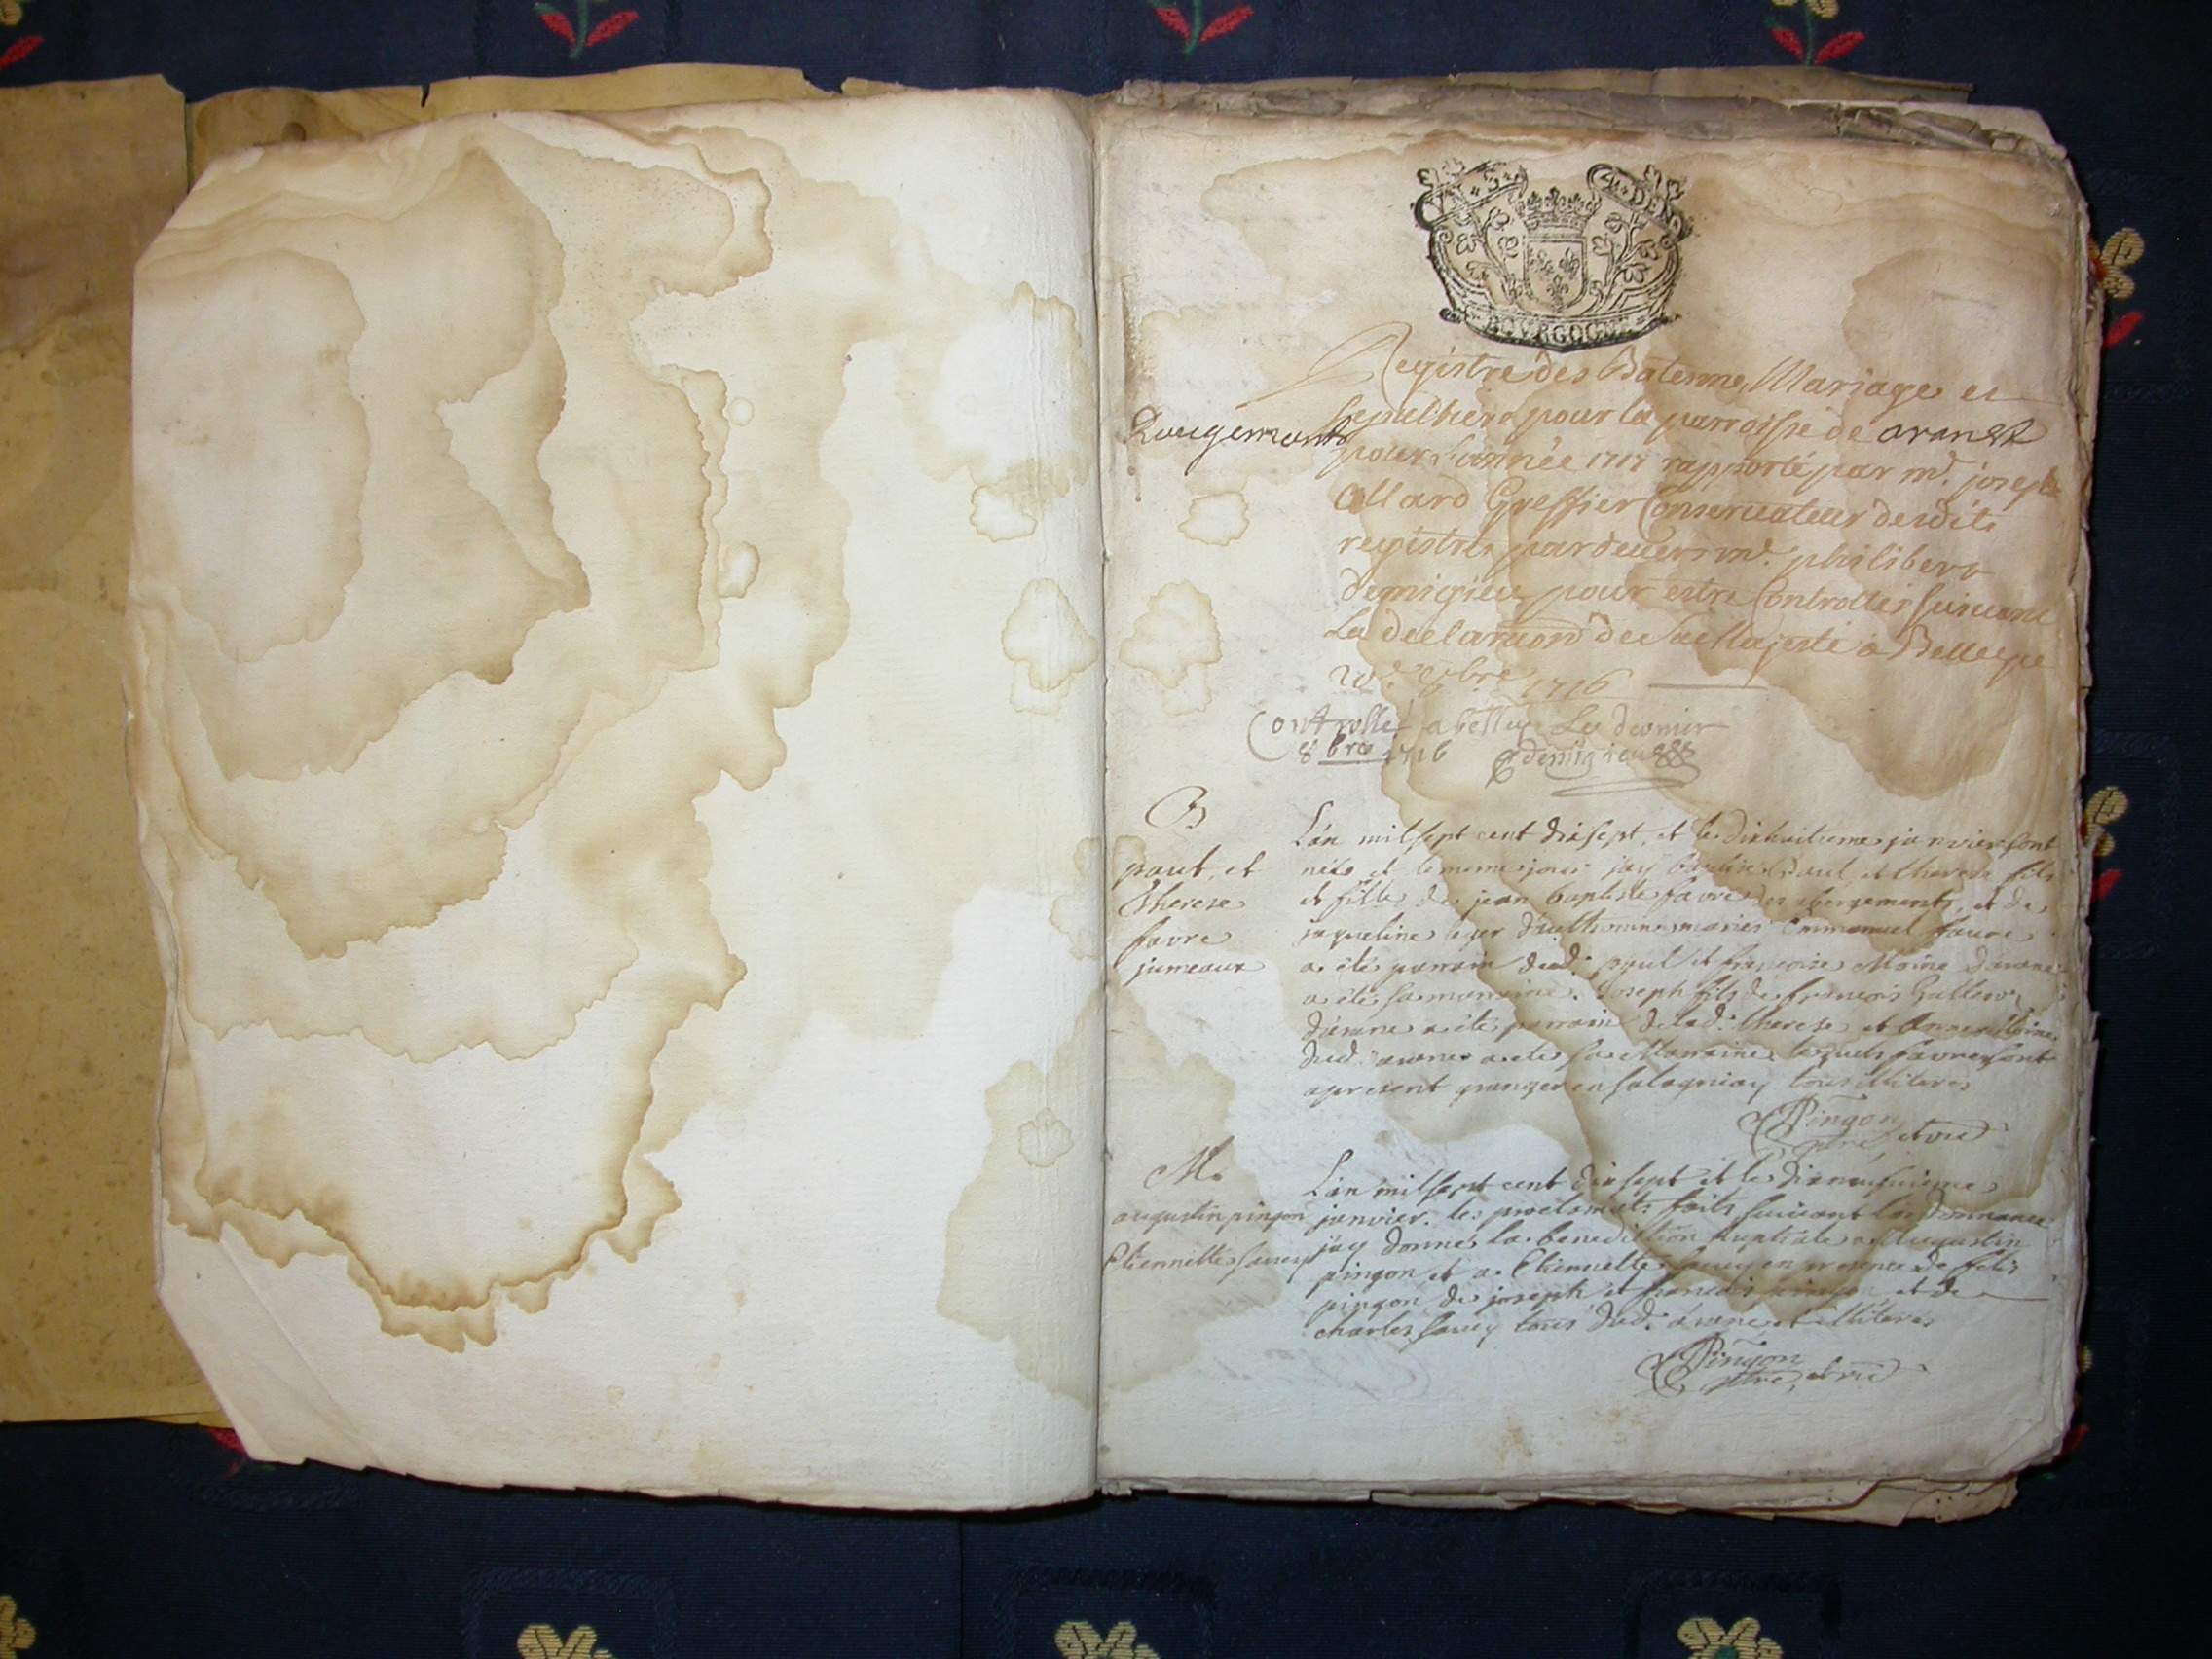 4. DEN
BOVRGOGNE
Registre des Batesme, Mariage et
sepulthere pour la parroisse de aranst
Rougemont
pour l'année 1717 rapporté par mr. joseph
Allard Greffier Conservateur desdits
registres pardevers mr. philibert
demigieu pour estre Controllés suivant
La declaration de Sa Majesté a Belleye
8bre 1716
Controllé a belley Le dernier
8bre 1716 demigieu
B
paul, et
Therese
favre
jumeaux
L'an mil sept cent dixsept, et le dixhuitieme janvier sont
néés et le meme jour jay baptisé Paul et therese fils
et fille de jean baptiste favre des abergements, et de
jaqueline mariés Emmanuel favre
a été parrain dud. paul et françoise Moine
a été sa marraine. Joseph fils de françois
a été parrain de lad. therese et Anne Moine
dud. a été sa Marraine lesquels favre sont
apresent granger en tous illiteres
Pingon
ptre, et vic
M.
augustin pingon
Etiennette savey
L'an mil sept cent dix sept et le dixneufvieme
janvier. les proclamats faits suivant lordonnance
jay donné la benediction nuptiale a Augustin
pingon et a Etiennette savey en presence de felix
pingon de joseph et françois pingon et de
charles savey tous dud. et illiteres
Pingon
ptre, et vic